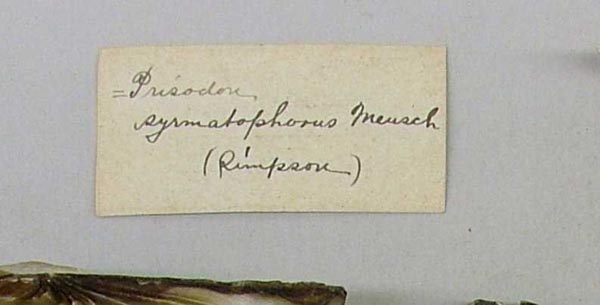 = Prisodon
syrmatophorus Meusch
(Simpson)